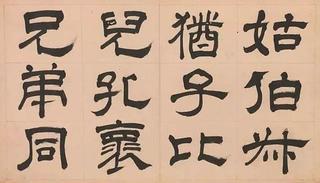 姑伯叔
猶子比
兒孔裏
兄弟同